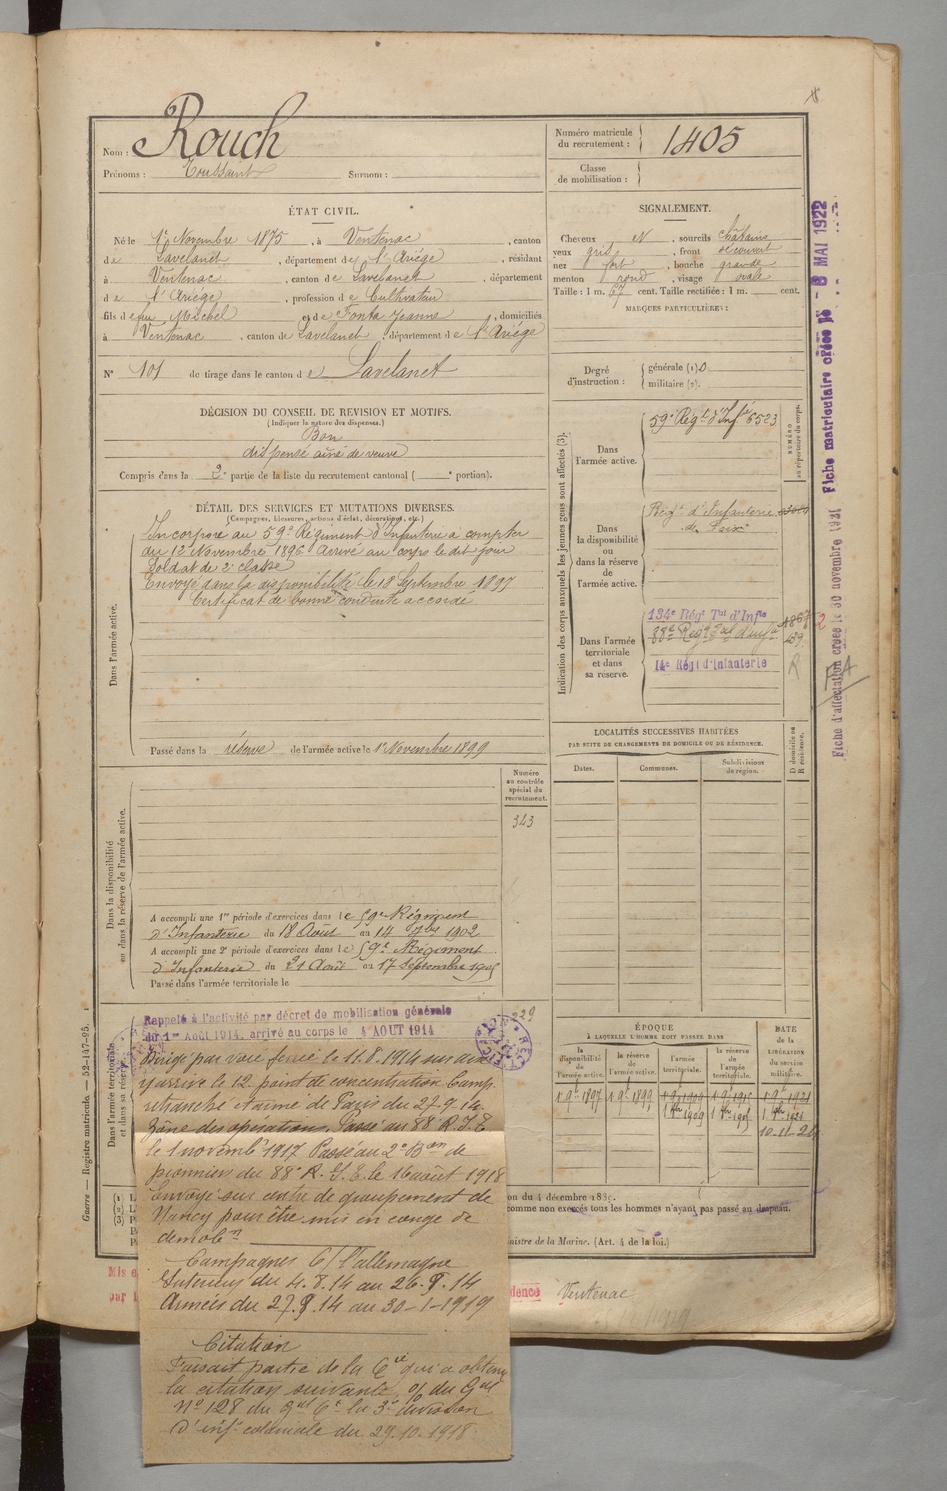 Nom : Rouch
Prénoms : Toussaint Surnom :
Numéro matricule du recrutement : 1405
Classe de mobilisation :
ÉTAT CIVIL.
Né le 1er Novembre 1875, à Ventenac, canton
de Lavelanet, département de l'Ariège, résidant
à Ventenac, canton de Lavelanet, département
de l'Ariège, profession de Cultivateur
fils de feu Michel et de Fonta Jeanne, domiciliés
à Ventenac, canton de Lavelanet, département de l'Ariège
N° 101 de tirage dans le canton de Lavelanet
SIGNALEMENT.
Cheveux N, sourcils châtains
yeux gris, front découvert
nez fort, bouche grande
menton rond, visage ovale
Taille : 1 m. 67 cent. Taille rectifiée : 1 m. cent.
MARQUES PARTICULIÈRES :
Degré d'instruction : générale (1) 0
militaire (2).
DÉCISION DU CONSEIL DE REVISION ET MOTIFS.
(Indiquer la nature des dispenses.)
Bon
dispensé aîné de veuve
Compris dans la 2e partie de la liste du recrutement cantonal ( e portion).
DÉTAIL DES SERVICES ET MUTATIONS DIVERSES.
(Campagnes, blessures, actions d'éclat, décorations, etc.)
Dans l'armée active.
Incorporé au 59e Régiment d'Infanterie à compter
du 12 Novembre 1896 Arrivé au corps le dit jour
Soldat de 2e classe
Envoyé dans la disponibilité le 18 Septembre 1897
Certificat de bonne conduite accordé
Passé dans la réserve de l'armée active le 1er Novembre 1899
Indication des corps auxquels les jeunes gens sont affectés (3).
NUMÉRO au répertoire du corps.
Dans l'armée active.
59e Régt d'Infie 6523
Dans la disponibilité ou dans la réserve de l'armée active.
Régt d'Infanterie
de Foix
Dans l'armée territoriale et dans sa réserve.
134e Régt Tal d'Infie
88e Régt Tal d'Infie
14e Régt d'Infanterie
LOCALITÉS SUCCESSIVES HABITÉES
PAR SUITE DE CHANGEMENTS DE DOMICILE OU DE RÉSIDENCE.
Dates. Communes. Subdivisions de région. D domicile ou R résidence.
Dans la disponibilité ou dans la réserve de l'armée active.
Numéro au contrôle spécial du recrutement.
343
A accompli une 1re période d'exercices dans le 59e Régiment
d'Infanterie du 18 Août au 14 7bre 1902
A accompli une 2e période d'exercices dans le 59e Régiment
d'Infanterie du 21 Août au 17 Septembre 1905
Passé dans l'armée territoriale le
Dans l'armée territoriale et dans sa réserve
Rappelé à l'activité par décret de mobilisation générale
du 1er Août 1914, arrivé au corps le 4 AOUT 1914
Dirigé par voie ferrée le 11.8.1914 sur
y arrivé le 12 point de concentration Camp
retranché et armé de Paris du 27-9-14.
Zône des opérations. Passé au 88e R.I.T.
le 1 novembre 1917 Passé au 2e Bon de
pionniers du 88e R.I.T. le 16 août 1918
Envoyé sur centre de groupement de
Nancy pour être mis en congé de
démobon
Campagnes C/ l'allemagne
Intérieur du 4.8.14 au 26.8.14
Armées du 27.8.14 au 30-1-1919
Citation
Faisait partie de la Cie qui a obtenu
la citation suivante, O/ du Gal
N° 128 du Gal Ct la 3e division
d'infie coloniale du 29.10.1918
ÉPOQUE
À LAQUELLE L'HOMME DOIT PASSER DANS
la disponibilité de l'armée active. la réserve de l'armée active. l'armée territoriale. la réserve de l'armée territoriale.
DATE DE LA LIBÉRATION du service militaire.
1 9bre 1897 1 9bre 1899
10-11-24
on du 4 décembre 1889.
comme non exercés tous les hommes n'ayant pas passé au drapeau.
nistre de la Marine. (Art. 4 de la loi.)
Mis e
par l
dence Ventenac
Guerre — Registre matricule. — 52-147-95.
Fiche matriculaire créée le 8 MAI 1922
Fiche d'affectation créée le 30 novembre 1921